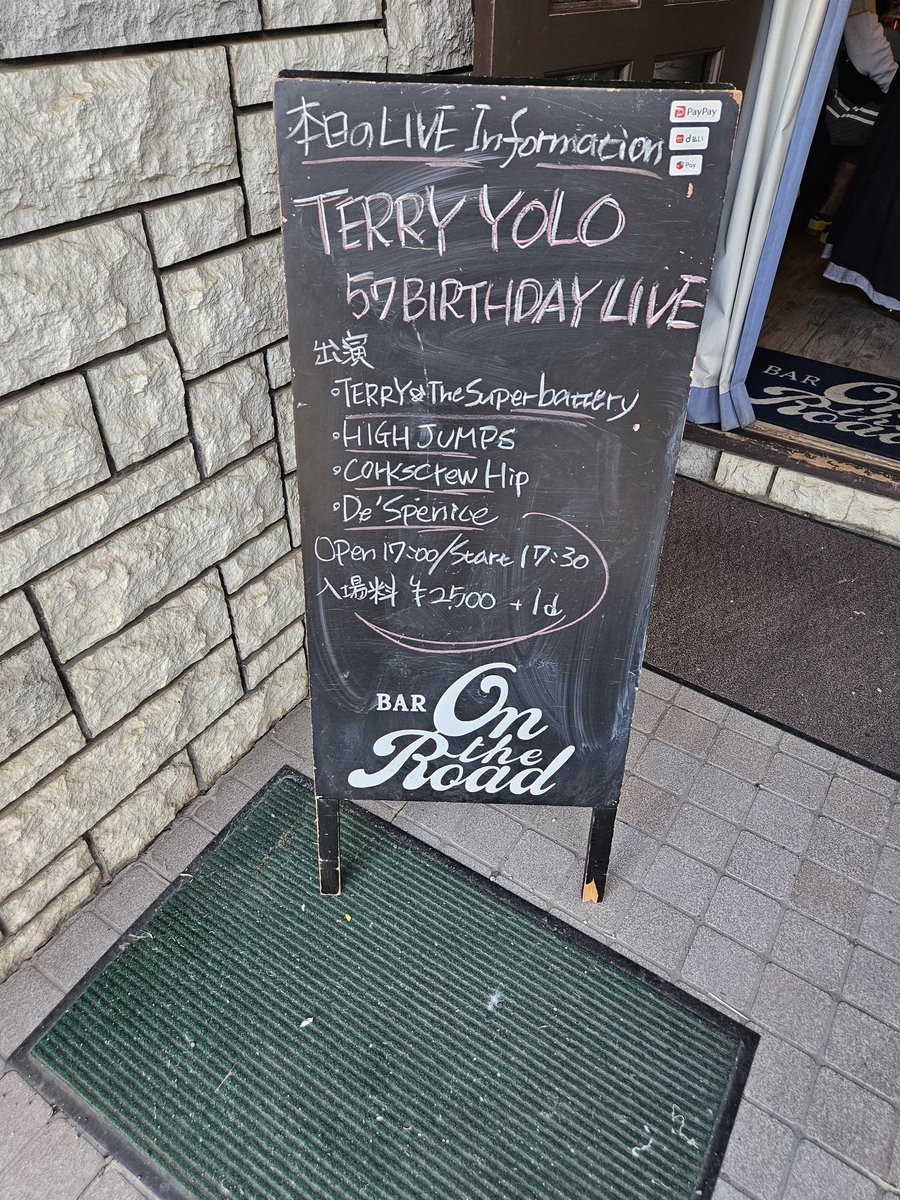 本日のLIVE Information
PayPay
d払い
Pay
TERRY YOLO
57 BIRTHDAY LIVE
出演
・TERRY&The Super battery
・HIGH JUMPS
・Corkscrew Hip
・De'Spenice
Open 17:00/Start 17:30
入場料 ¥2500 + 1d
BAR On the Road
BAR On the Road